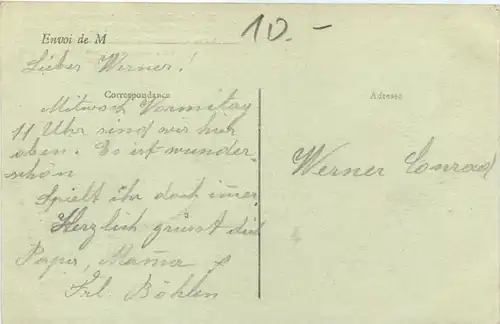 10.-
Envoi de M
Lieber Werner!
Correspondance
Adresse
Mitwoch Vormitag
11 Uhr sind wir hier
oben. Es ist wunder-
schön
Spielt ihr doch imer.
Herzlich grüsst dich
Papa, Mama &
Frl. Böhlen
Werner Conrad